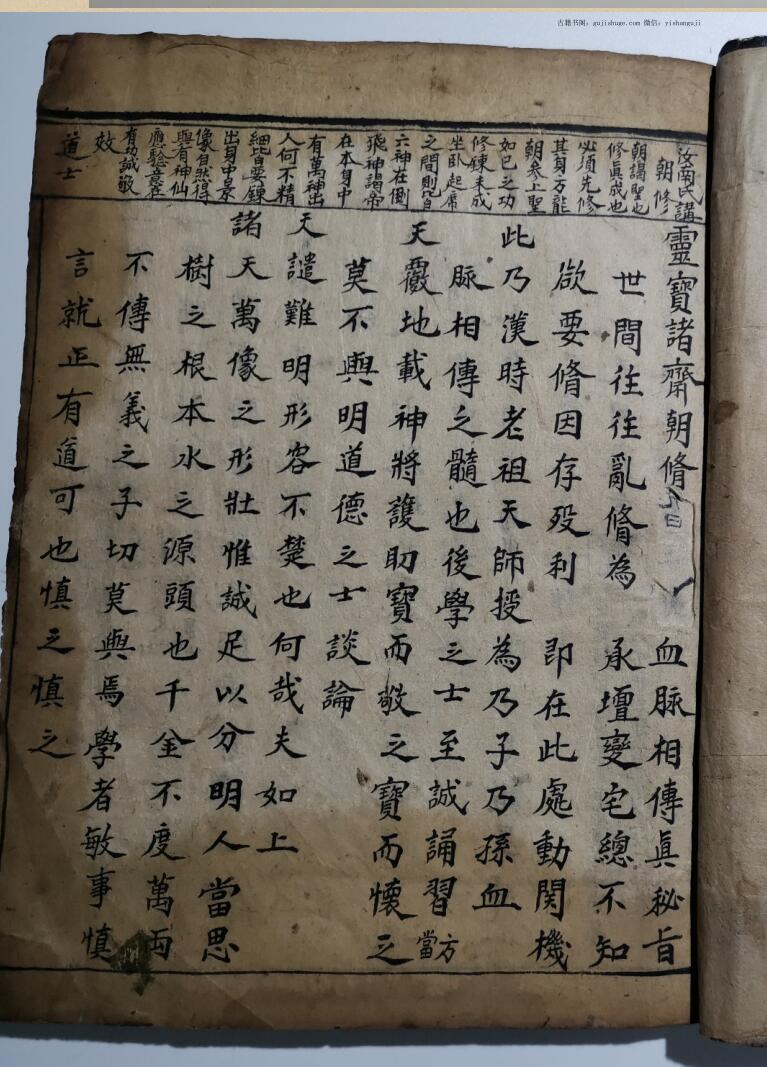 古籍书阁：gujishuge.com 微信：yishanguji
汝南氏講
朝修
朝謁聖也
修眞成也
必須先修
其身方能
朝參上聖
如已之功
修鍊未成
坐卧起席
之間則皆
六神在倒
飛神謁帝
在本身中
有萬神出
人何不精
細皆要鍊
出身中景
像自然得
與有神仙
應驗意在
有功誠敬
效
道士
靈寶諸齋朝脩 血脉相傳眞秘旨
世間往往亂脩為 承壇變宅總不知
欲要脩因存殁利 即在此處動関機
此乃漢時老祖天師授為乃子乃孫血
脉相傳之髓也後學之士至誠誦習當方
天覆地載神將護助寶而敬之寶而懷之
莫不與明道德之士談論
天譴難明形容不楚也何哉夫如上
諸天萬像之形壯惟誠足以分明人當思
樹之根本水之源頭也千金不度萬両
不傳無義之子切莫與焉學者敏事慎
言就正有道可也慎之慎之